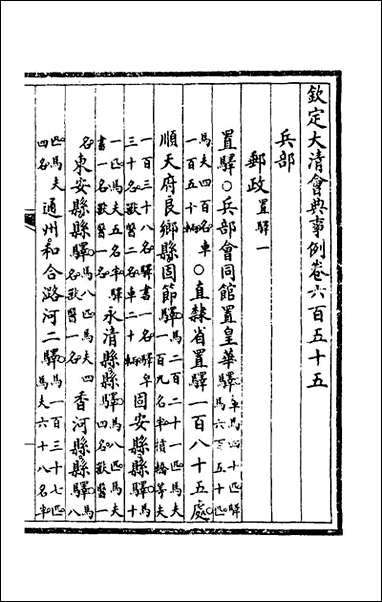 欽定大清會典事例卷六百五十五
兵部
郵政置驛一
置驛○兵部會同館置皇華驛車馬四十匹驛馬六百五十匹
馬夫四百名車一百五十輛○直隸省置驛一百八十五處
順天府良鄉縣固節驛馬二百二十一匹馬夫一百九名半轎等夫
一百三十八名驛書一名驛皂三十名獸醫二名車二十輛固安縣縣驛馬十
一匹馬夫五名半驛書一名獸醫一名永清縣縣驛馬八匹馬夫四名獸醫一
名東安縣縣驛馬八匹馬夫四名獸醫一名香河縣縣驛馬八
匹馬夫四名通州和合潞河二驛馬一百三十七匹馬夫六十八名半